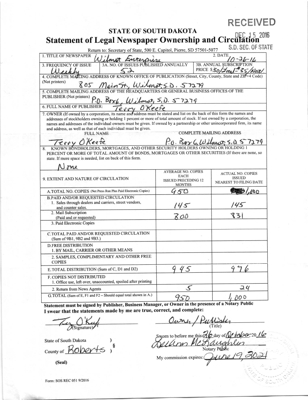 RECEIVED
DEC 15 2016
S.D. SEC. OF STATE
STATE OF SOUTH DAKOTA
Statement of Legal Newspaper Ownership and Circulation
Return to: Secretary of State, 500 E. Capitol, Pierre, SD 57501-5077
1. TITLE OF NEWSPAPER Wilmot Enterprise
2. DATE 10-26-16
3. FREQUENCY OF ISSUE Weekly
3A. NO. OF ISSUES PUBLISHED ANNUALLY 52
3B. ANNUAL SUBSCRIPTION PRICE
4. COMPLETE MAILING ADDRESS OF KNOWN OFFICE OF PUBLICATION (Street, City, County, State and ZIP + Code)
(Not printers) 805 Main St, Wilmot, S.D. 57279
5. COMPLETE MAILING ADDRESS OF THE HEADQUARTERS OF GENERAL BUSINESS OFFICES OF THE
PUBLISHER (Not printer) P.O. Box 6, Wilmot, S.D. 57279
6. FULL NAME OF PUBLISHER: Terry O'Keefe
7. OWNER (If owned by a corporation, its name and address must be stated and also
FULL NAME
COMPLETE MAILING ADDRESS
Terry O'Keefe
P.O. Box 6, Wilmot, S.D. 57279
8. KNOWN BONDHOLDERS, MORTGAGEES, AND OTHER SECURITY HOLDERS OWNING OR HOLDING 1
PERCENT OR MORE OF TOTAL AMOUNT OF BONDS, MORTGAGES OR OTHER SECURITIES (If there are none, so
state. If more space is needed, list on back of this form.
None
9. EXTENT AND NATURE OF CIRCULATION
AVERAGE NO. COPIES EACH ISSUE DURING PRECEDING 12 MONTHS
ACTUAL NO. COPIES ISSUED NEAREST TO FILING DATE
A. TOTAL NO. COPIES 950 1,000
B. PAID AND/OR REQUESTED CIRCULATION
1. Sales through dealers and carriers, street vendors,
and counter sales 145 145
2. Mail Subscription
(Paid and or requested) 800 831
3. Paid Electronic Copies
C. TOTAL PAID AND/OR REQUESTED CIRCULATION
(Sum of 9B1, 9B2, 9B3)
D. FREE DISTRIBUTION
1. BY MAIL, CARRIER OR OTHER MEANS
2. SAMPLES, COMPLIMENTARY AND OTHER FREE
COPIES
E. TOTAL DISTRIBUTION (Sum of C, D1 and D2) 945 976
F. COPIES NOT DISTRIBUTED
1. Office use, left over, unaccounted, spoiled after printing
2. Return from News Agents 5 24
G. TOTAL (Sum of E, F1 and F2 – Should equal total shown in A.) 950 1,000
Statement must be signed by Publisher, Business Manager, or Owner in the presence of a Notary Public
I swear that the statements made by me are true, correct, and complete:
Terry O'Keefe
(Signature)
Owner / Publisher
(Title)
State of South Dakota )
County of Roberts )
(Seal)
Sworn to before me this 26 day of October 16
Notary Public
My commission expires: June 19, 2021
Form: SOS REC 051 9/2016